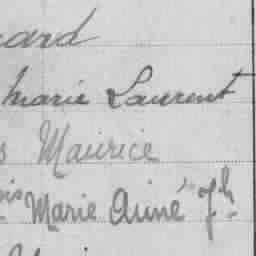 ard
Marie Laurent
s Maurice
ois Marie Aimé Jh